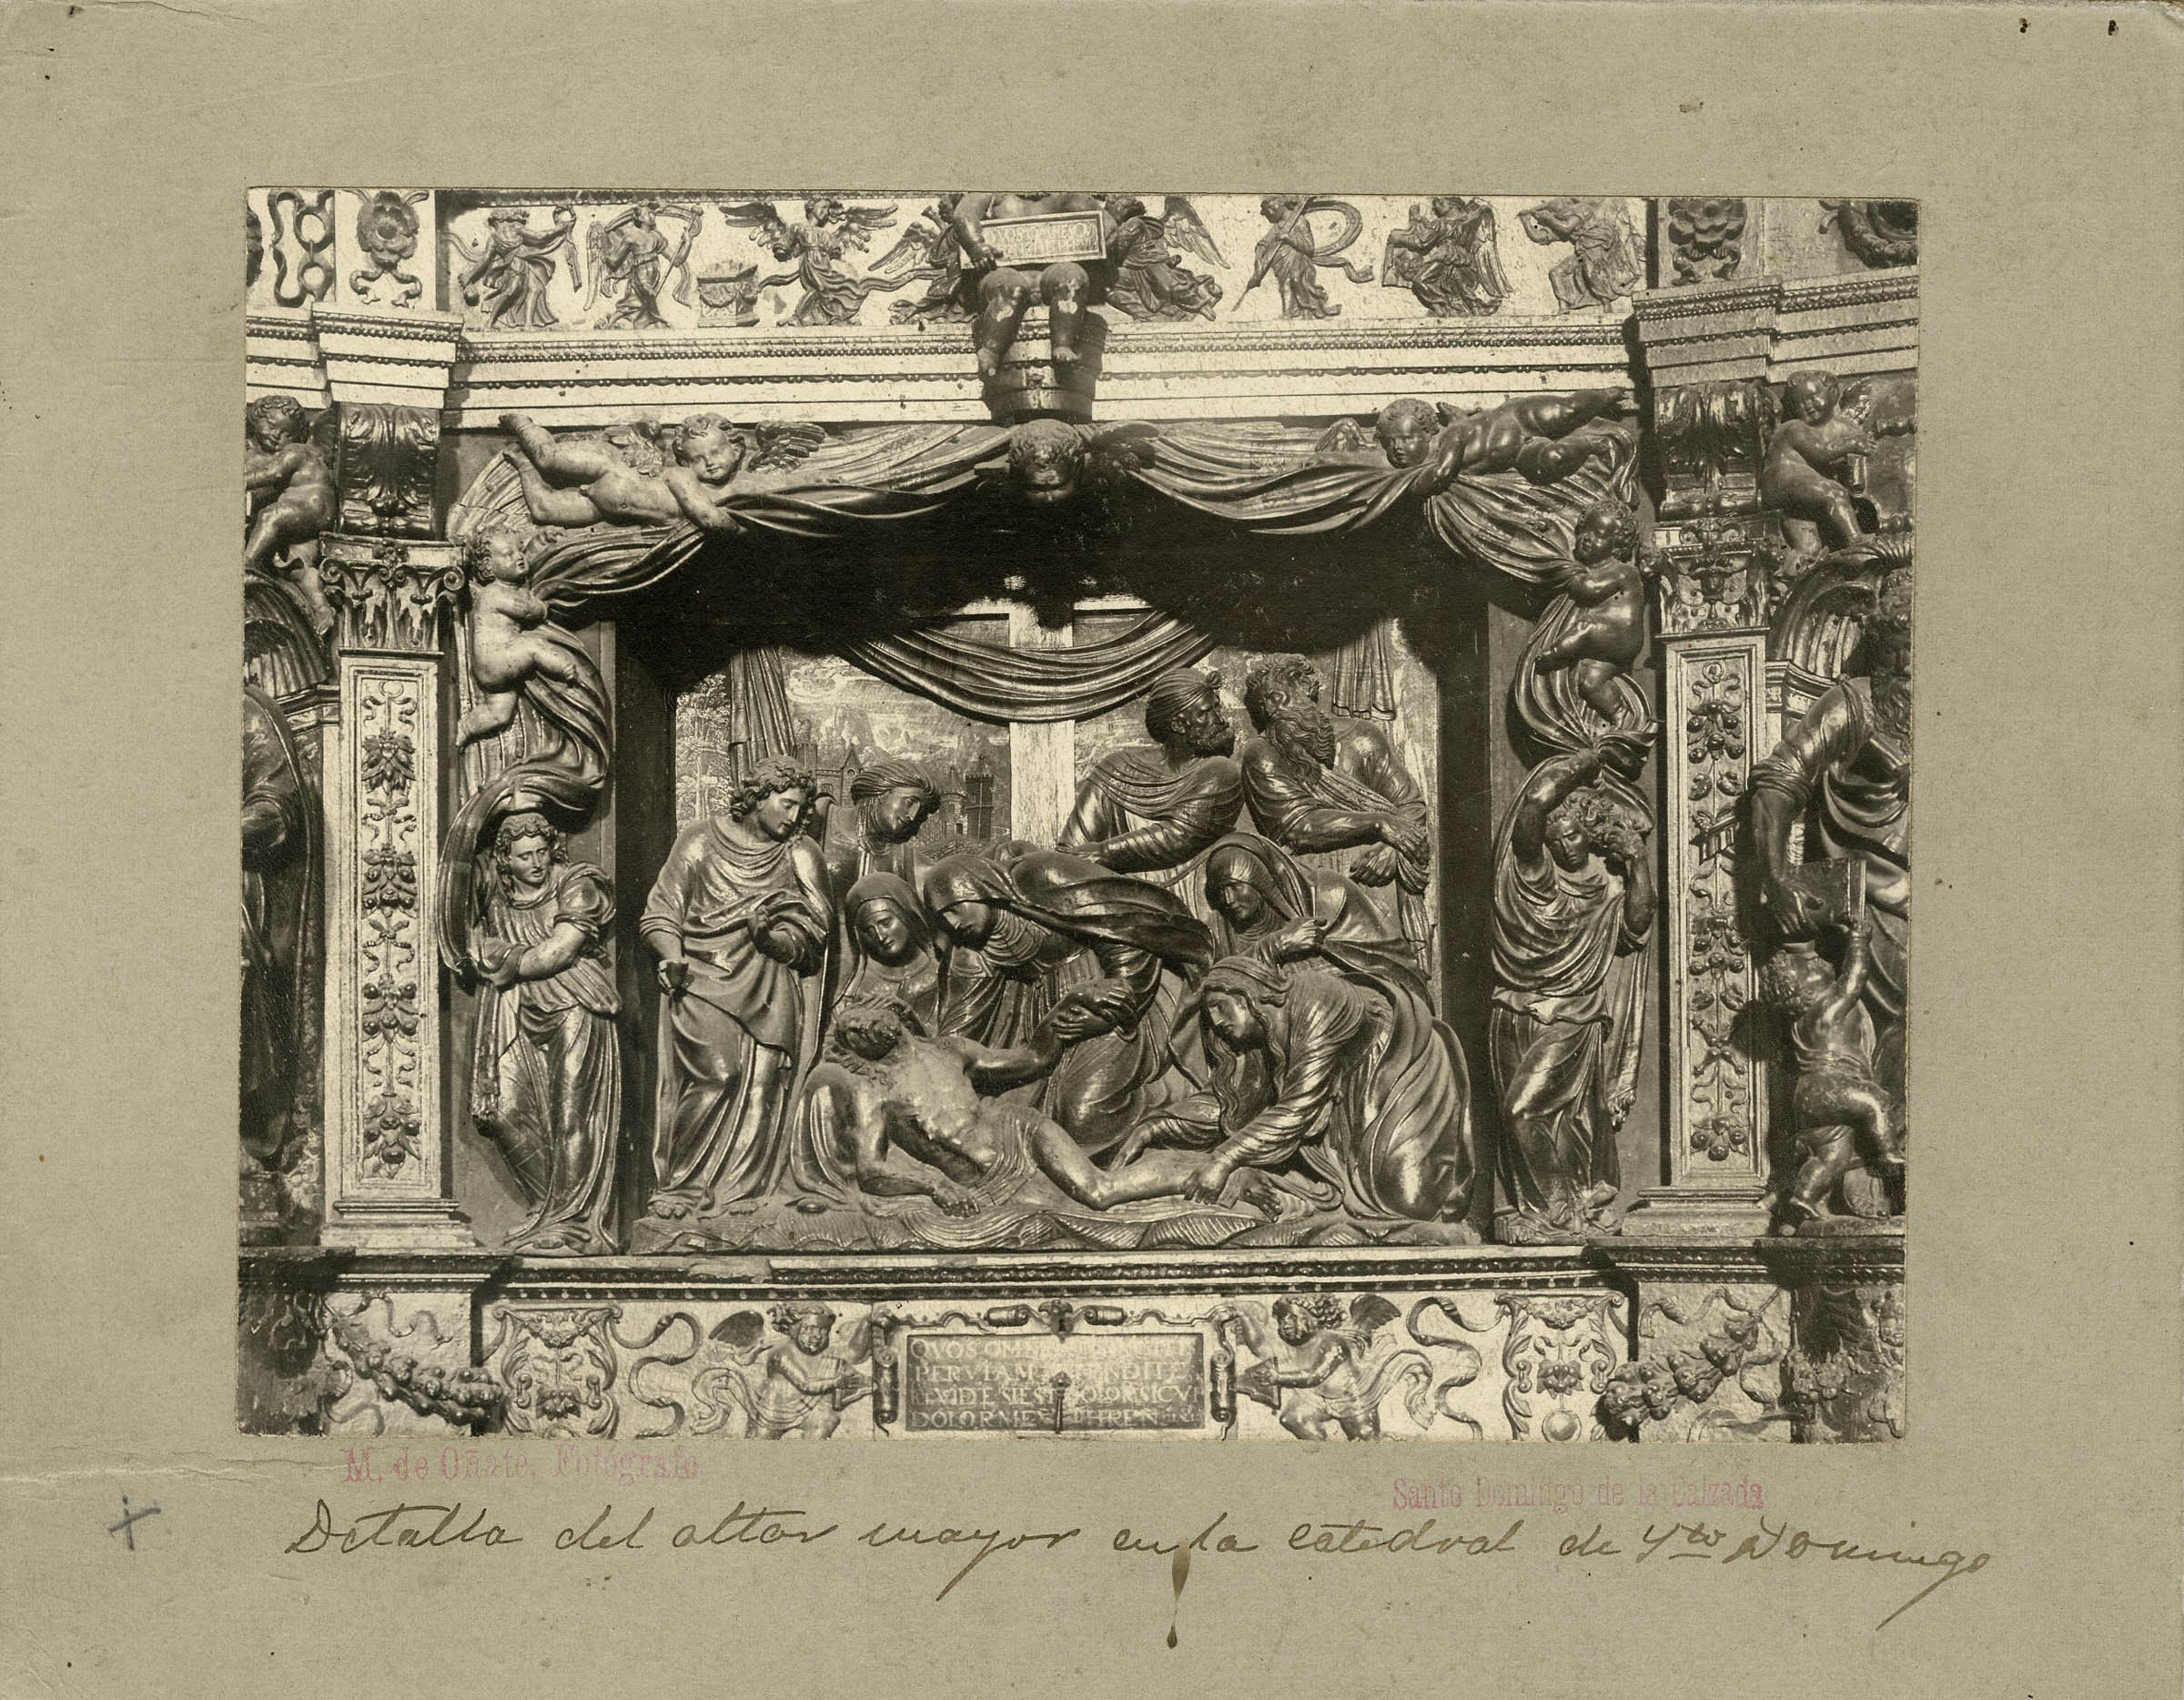 QVOS OM
PERVIAM
EVIDE SIEST DOLOR SICV
DOLOR ME THREN
M. de Oñate, Fotógrafo
Santo Domingo de la Calzada
Detalla del altar mayor en la catedral de Sto Domingo